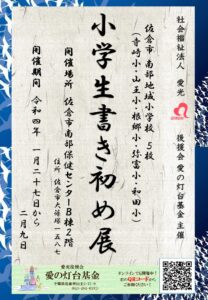 社会福祉法人 愛光
後援会 愛の灯台基金 主催
佐倉市 南部地域小学校 5校
(寺崎小・山王小・根郷小・弥富小・和田小)
小学生書き初め展
開催場所 佐倉市南部保健センターB棟2階
住所 佐倉市大篠塚一五八七
開催期間 令和四年 一月二十七日から
二月九日
愛光後援会
愛の灯台基金
オンラインでも開催中!